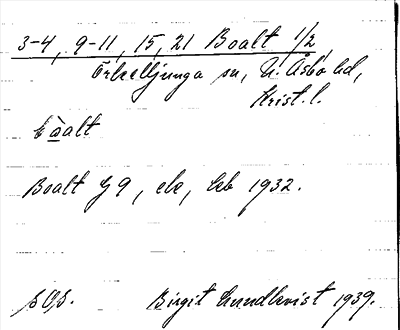 3-4, 9-11, 15, 21 Boalt 1/2,
Örkelljunga sn, N. Åsbo hd,
Krist. l.
bòalt
Boalt G 9, ek, kb 1932.
Birgit Lundkvist 1939.